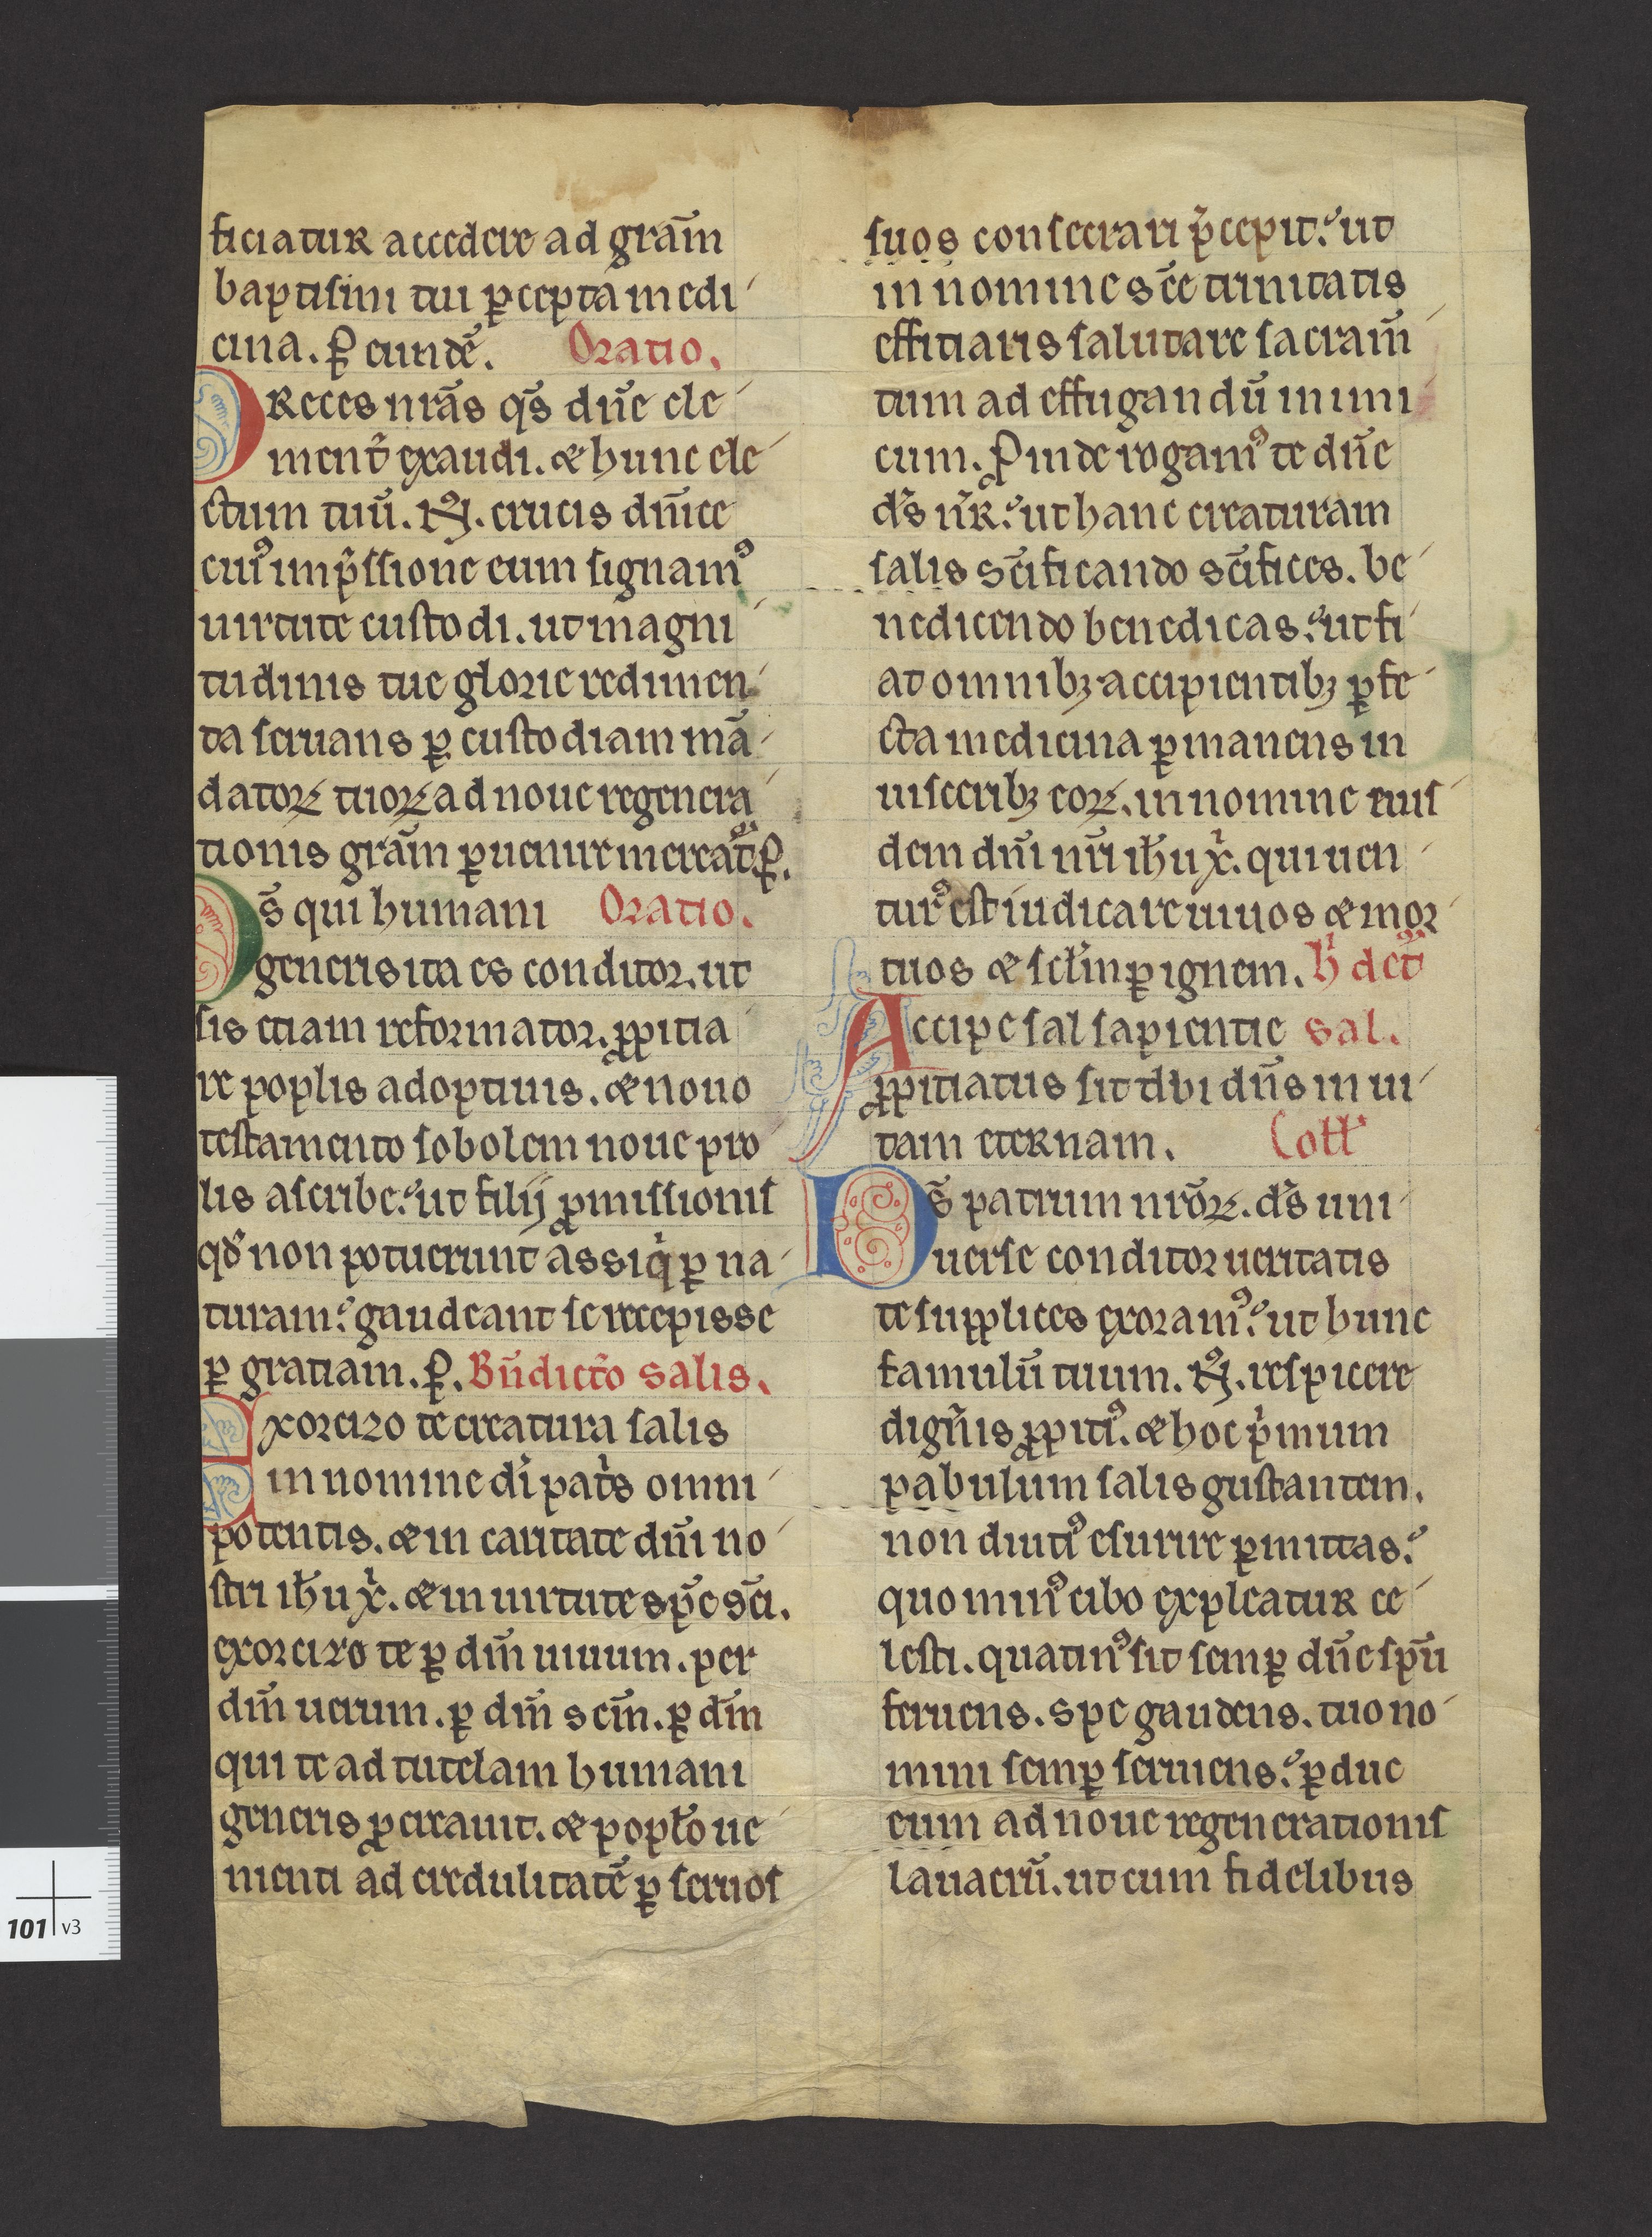 ficiatur accedere ad grãm
baptismi tui ꝑcepta medi
cina. Ꝑ eundẽ. Oratio.
Preces nrãs qs̃ dñe cle
ment͛ exaudi. ⁊ hunc ele
ctum tuũ. N. crucis dñice
cuiꝰ imp̃ssione eum signamꝰ
uirtute custodi. ut magni
tudinis tue glorie rudimen
ta seruans ꝑ custodiam mã
datoꝝ tuoꝝ ad noue regenera
tionis grãm ꝑuenire mereat᷑. Ꝑ.
Ds̃ qui humani Oratio.
generis ita es conditor. ut
sis etiam reformator. ꝓpitia
re poplis adoptiuis. ⁊ nouo
testamento sobolem noue pro
lis ascribe. ut filij ꝓmissionis
qđ non potuerunt assiq̇ ꝑ na
turam. gaudeant se recepisse
ꝑ gratiam. Ꝑ. Bñdictĩo salis.
Exorcizo te creatura salis
in nomine dĩ pat̃s omni
potentis. ⁊ in caritate dñi no
stri ihũ xp̃. ⁊ in uirtute spc̃ sc̃i.
exorcizo te ꝑ dm̃ uiuum. per
dm̃ uerum. ꝑ dm̃ scm̃. ꝑ dm̃
qui te ad tutelam humani
generis ꝓcreauit. ⁊ poplo ue
nienti ad credulitatẽ ꝑ seruos
suos consecrari p̃cepit. ut
in nomine sc̃e trinitatis
efficiaris salutare sacram̃
tum ad effugandũ inimi
cum. Ꝓinde rogamꝰ te dñe
ds̃ nr̃. ut hanc creaturam
salis sc̃ificando sc̃ifices. be
nedicendo benedicas. ut fi
at omnibꝫ accipientibꝫ ꝑfe
cta medicina ꝑmanens in
uisceribꝫ eoꝝ. in nomine eius
dem dñi nr̃i ihũ xp̃. qui uen
turꝰ est iudicare uiuos ⁊ mor
tuos ⁊ sc̃lm ꝑ ignem. h̓ det᷑
Accipe sal sapientie sal.
ꝓpitiatus sit tibi dñs in ui
tam eternam. Coll̃
Ds̃ patrum nrõꝝ. ds̃ uni
uerse conditor ueritatis
te supplices exoramꝰ. ut hunc
famulũ tuum. N. respicere
dignẽis ꝓpitiꝰ. ⁊ hoc p̓mum
pabulum salis gustantem.
non diutiꝰ esurire ꝑmittas.
quo minꝰ cibo expleatur ce
lesti. quatinꝰ sit semꝑ dñe spũ
feruens. spe gaudens. tuo no
mini semꝑ seruiens. ꝑduc
eum ad noue regenerationis
lauacrũ. ut cum fidelibus